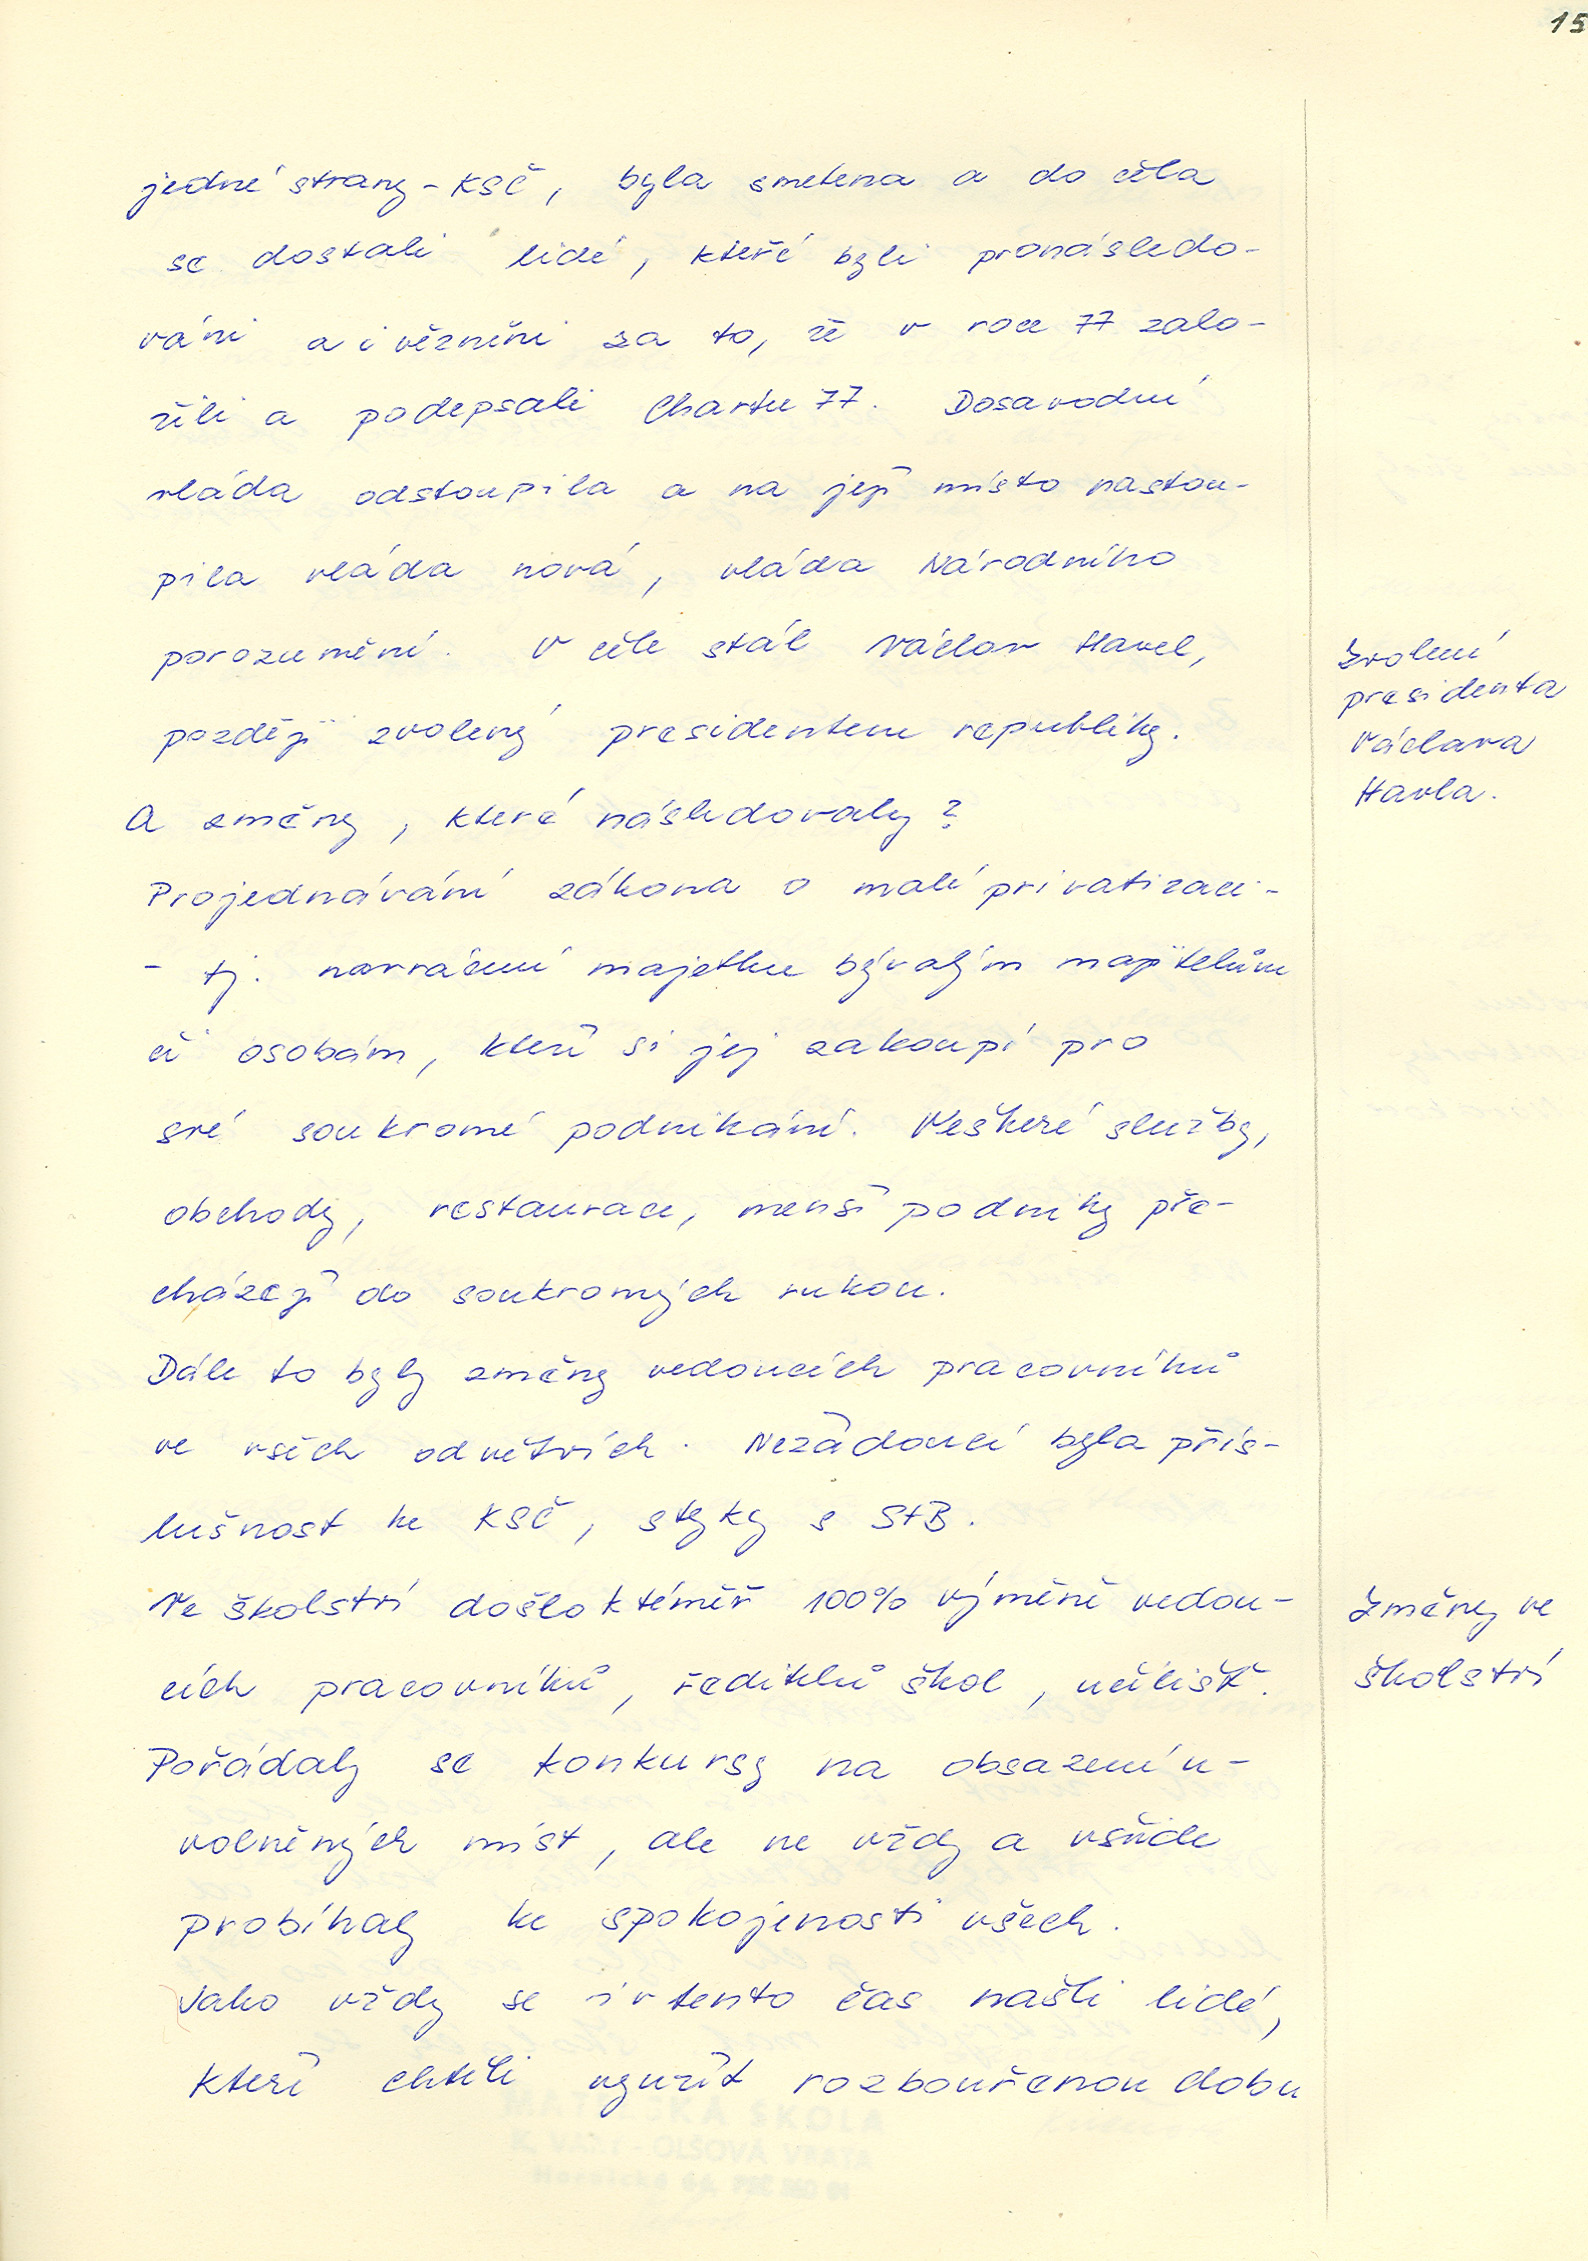 15
jedné strany - KSČ, byla smetena a do čela
se dostali lidé, kteří byli pronásledo-
váni a i vězněni za to, že v roce 77 zalo-
žili a podepsali Chartu 77. Dosavadní
vláda odstoupila a na její místo nastou-
pila vláda nová, vláda Národního
porozumění. V čele stál Václav Havel,
později zvolený presidentem republiky.
Zvolení
presidenta
Václava
Havla.
A změny, které následovaly?
Projednávání zákona o malé privatizaci -
- tj. navrácení majetku bývalým majitelům
či osobám, kteří si jej zakoupí pro
své soukromé podnikání. Veškeré služby,
obchody, restaurace, menší podniky pře-
cházejí do soukromých rukou.
Dále to byly změny vedoucích pracovníků
ve všech odvětvích. Nežádoucí byla přís-
lušnost ke KSČ, styky s StB.
Ve školství došlo k téměř 100% výměně vedou-
cích pracovníků, ředitelů škol, učilišť.
Změny ve
školství
Pořádaly se konkursy na obsazení u-
volněných míst, ale ne vždy a všude
probíhaly ke spokojenosti všech.
Jako vždy se i v tento čas našli lidé,
kteří chtěli využít rozbouřenou dobu